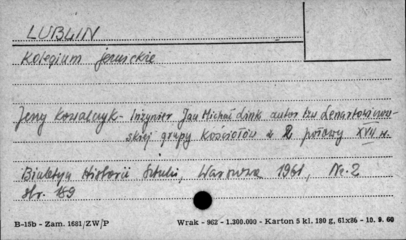 LUBLIN
Kolegium jezuickie
Jerzy Kowalczyk - Inżynier Jan Michał Link autor tzw Lenartowiczow-
skiej grupy Kościołów z 2 połowy XVII w.
Biuletyn Historii Sztuki, Warszawa 1961, Nr. 2
str. 159
B-15b - Zam. 1681/ZW/P Wrak - 962 - 1.300.000 - Karton 5 kl. 180 g, 61x86 - 10. 9. 60